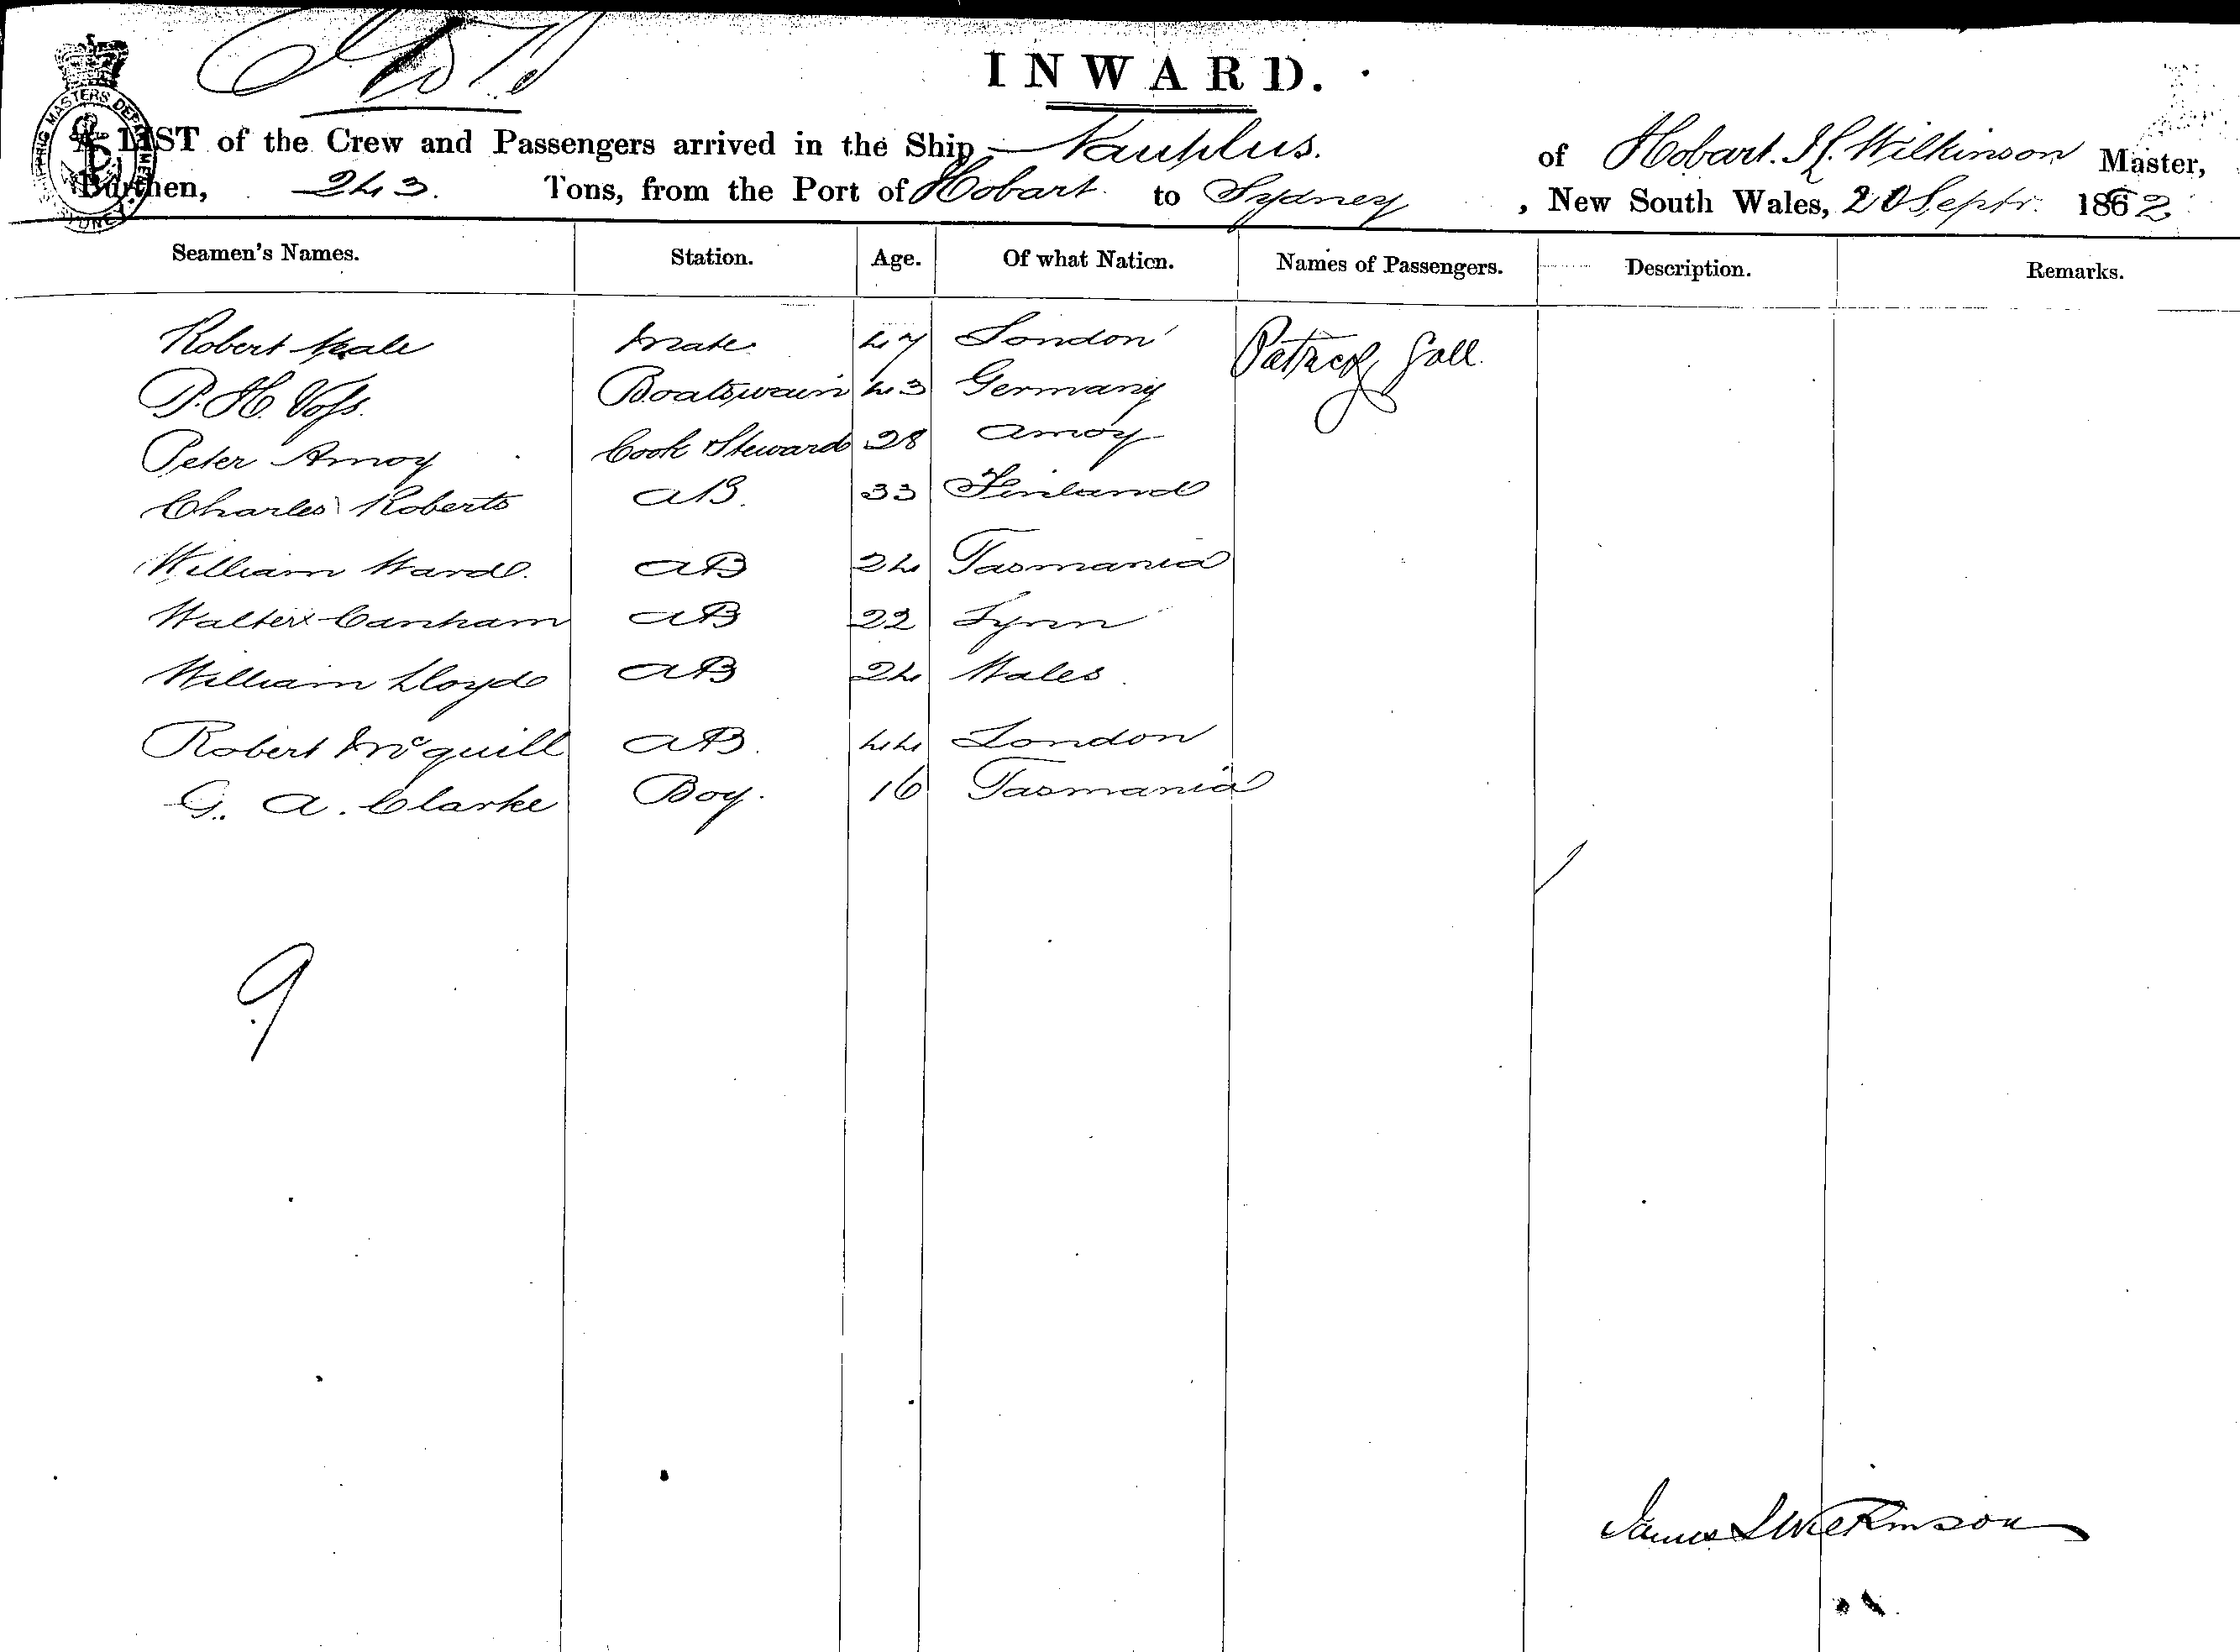 INWARD.
A LIST of the Crew and Passengers arrived in the Ship Nautilus. of Hobart. J L Wilkinson Master,
Burthen, 243. Tons, from the Port of Hobart to Sydney, New South Wales, 20 Septr. 1862
SHIPPING MASTERS DEPARTMENT SYDNEY
Seamen's Names. Station. Age. Of what Nation. Names of Passengers. Description. Remarks.
Robert Neale Mate 47 London Patrick Gall.
P. H. Voss. Boatswain 43 Germany
Peter Amoy Cook & Steward 28 Amoy
Charles Roberts AB. 33 Finland
William Ward. AB 24 Tasmania
Walter Canham AB 22 Lynn
William Lloyd AB 24 Wales
Robert McQuill AB. 44 London
G. A. Clarke Boy. 16 Tasmania
9
James L Wilkinson